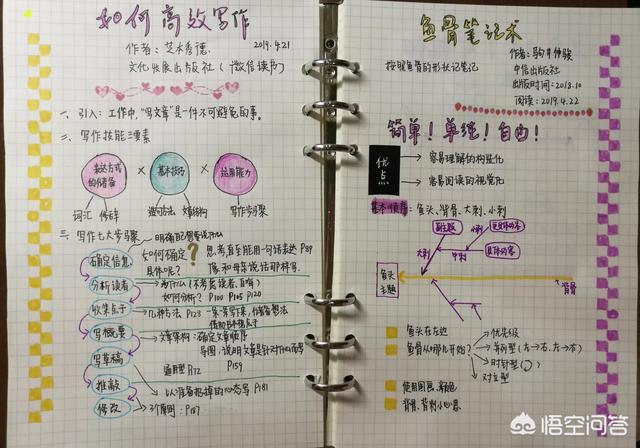 如何高效写作
作者：芝木秀德 2019.4.21
文化发展出版社（微信读书）
一、引入：工作中，"写文章"是一件不可避免的事。
二、写作技能三要素
表达方式的储备 × 基本技巧 × 运用能力
词汇 修辞 遣词方法 文章结构 写作步骤
三、写作七大步骤
明确自己想要说什么
确定信息 如何确定？ 思考直至能用一句话表达 P89
具体呢？ 像和母亲说话那样写
分析读者 为什么（不考虑读者，自嗨）
如何分析？ P100 P105 P120
收集点子 几种方法 P123
写概要 文章架构：确定文章顺序
导图：说明文章是针对
写草稿 通用型 P72 P159
推敲 以准备挨揍的心态写 P181
修改 3个原则：P187
鱼骨笔记术
按照鱼骨的形状记笔记
作者：驹井伸俊
中信出版社
出版时间：2018.10
阅读：2019.4.22
简单！单纯！自由！
优点 容易理解的构造化
容易阅读的视觉化
基本 鱼头、背骨、大刺、小刺
副主题
小刺
大刺 中刺 具体内容
鱼头
主题 背骨
鱼头在左边
鱼骨从哪儿开始？ 优先级
并列型（左→右、左→右）
时针型
对立型
使用图画、颜色
背骨、背刺
悟空问答